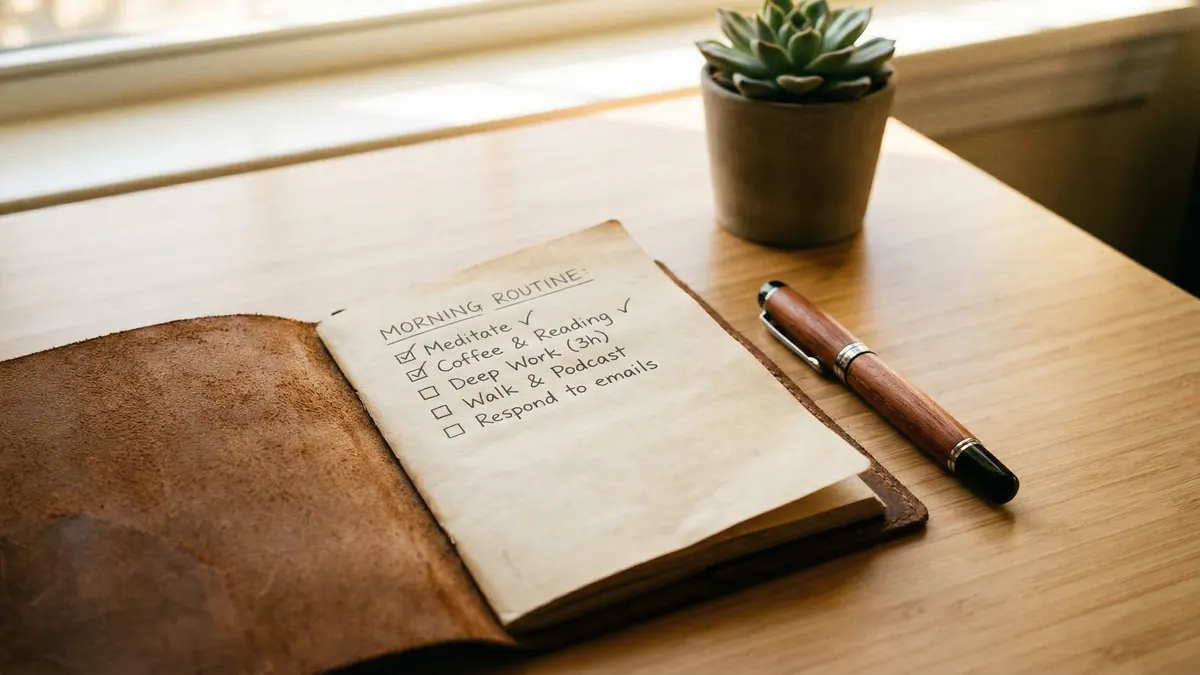 MORNING ROUTINE:
☑ Meditate ✓
☑ Coffee & Reading ✓
☐ Deep Work (3h)
☐ Walk & Podcast
☐ Respond to emails